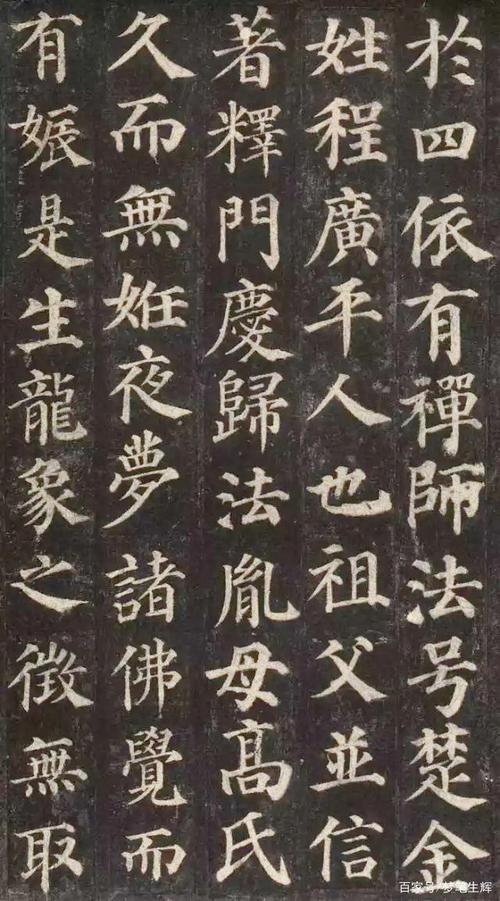 於四依有禪師法号楚金
姓程廣平人也祖父並信
著釋門慶歸法胤母髙氏
久而無姙夜夢諸佛覺而
有娠是生龍象之徵無取
百家号/梦笔生辉